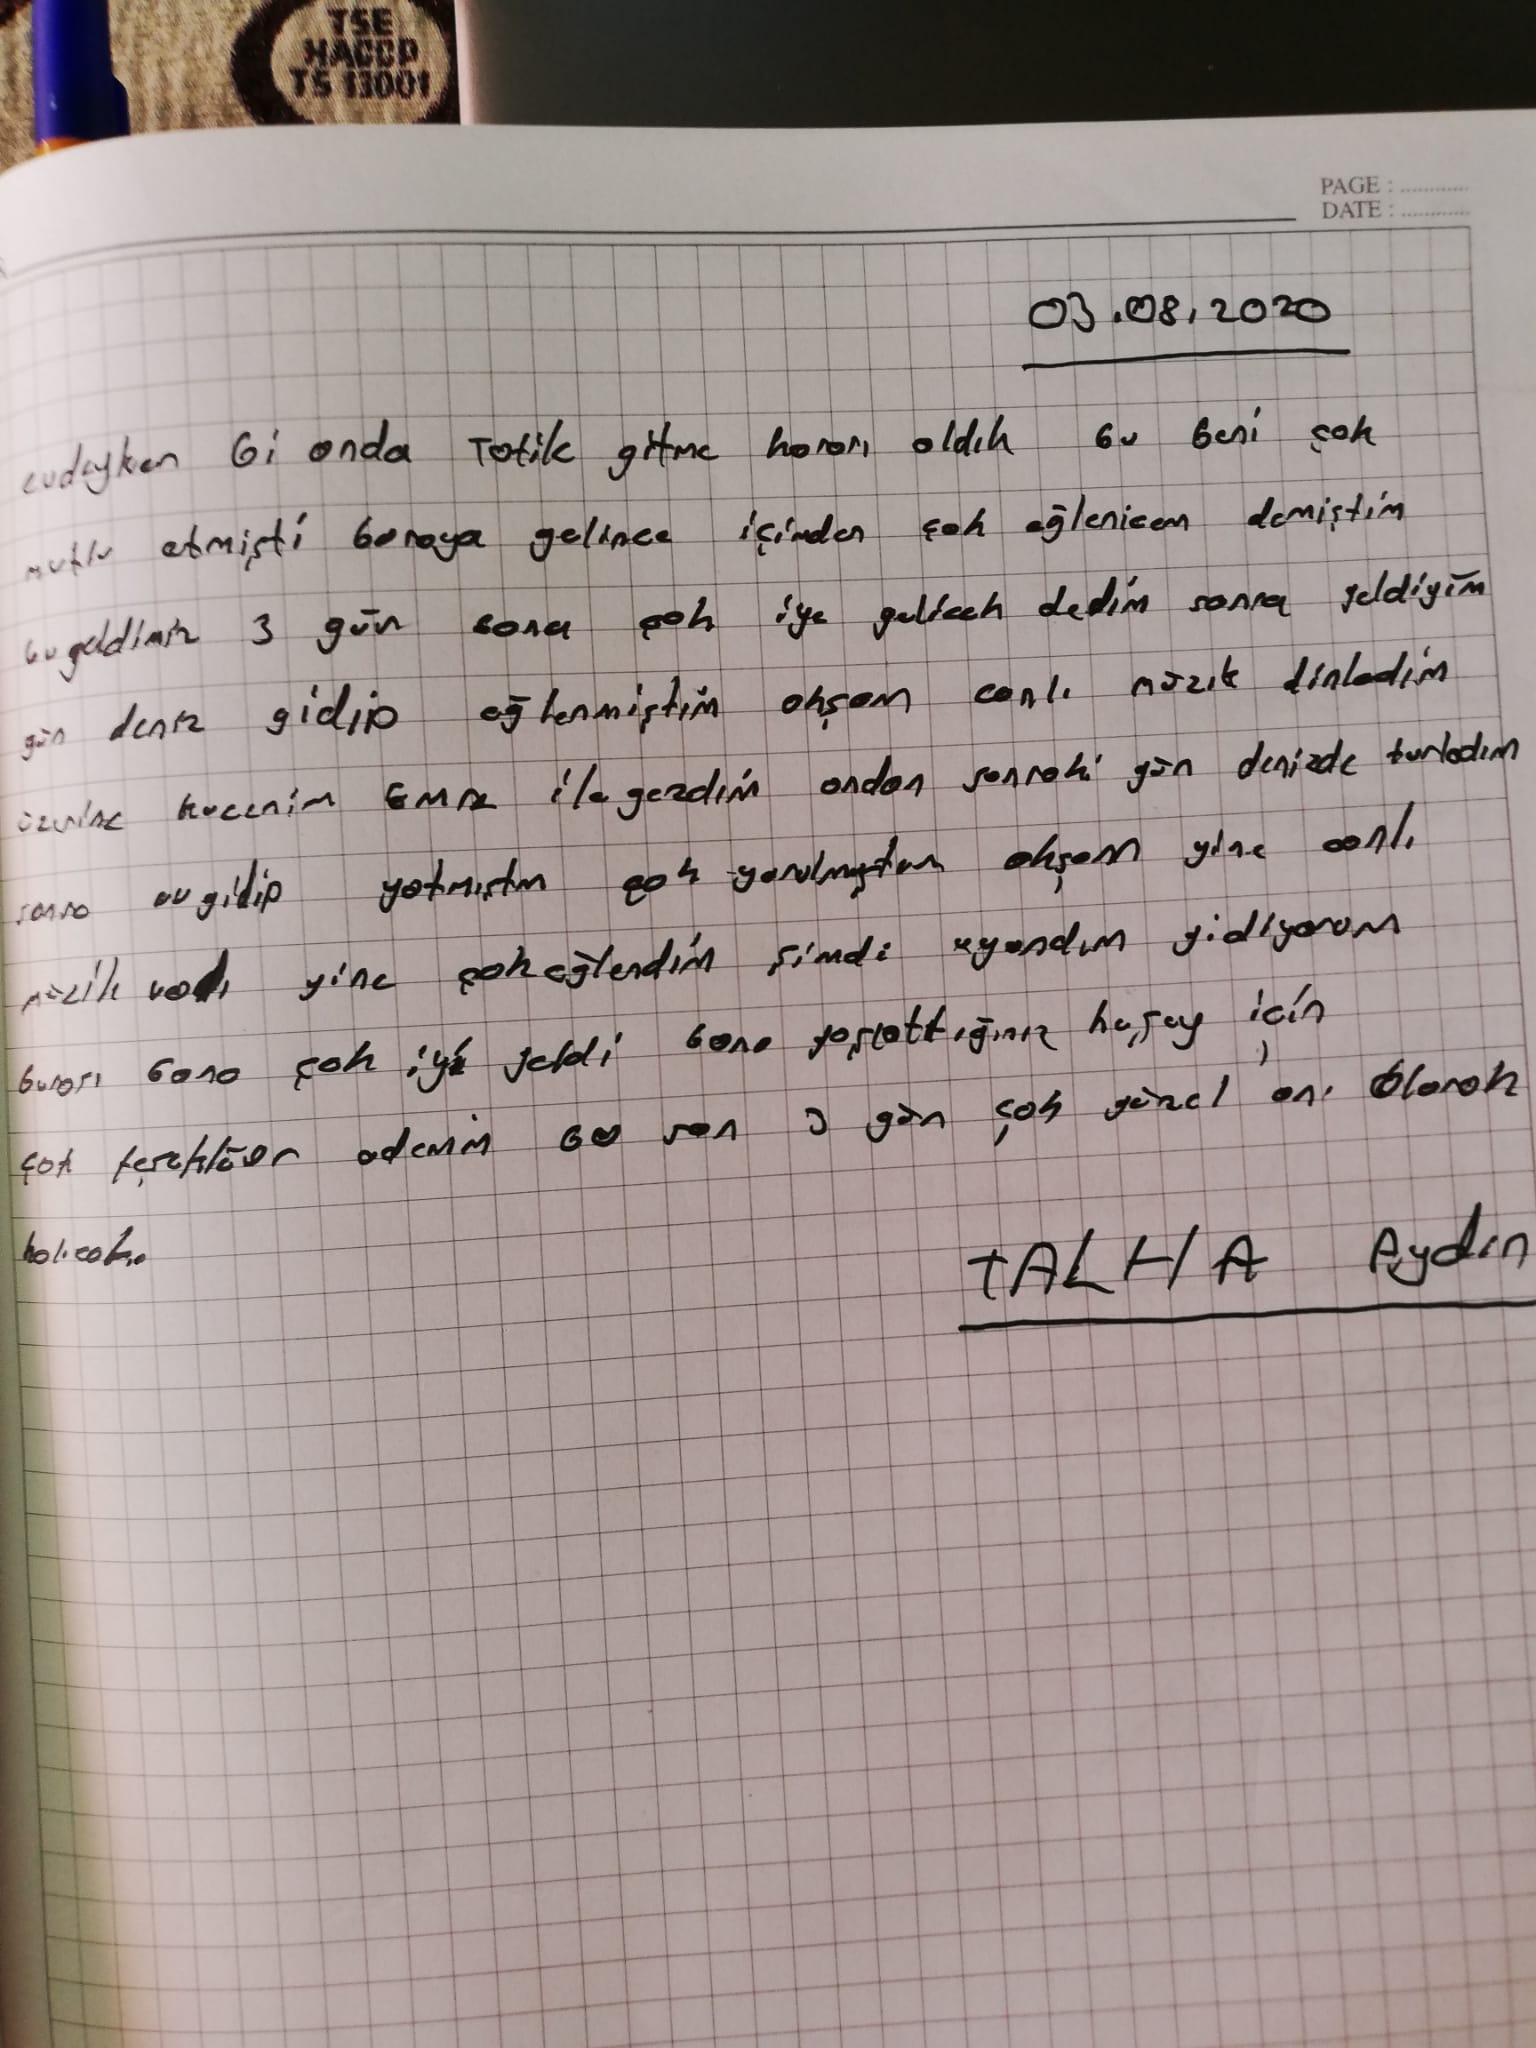 TSE
HACCP
TS 13001
PAGE : ............
DATE : ............
03.08.2020
evdeyken bi anda Totile gitme kararı aldık bu beni çok
mutlu etmişti buraya gelince içimden çok eğlenicem demiştim
bu geldimiz 3 gün bana çok iye gelicek dedim sonra geldiyim
gün deniz gidip eğlenmiştim akşam canlı müzik dinledim
üzerine kuzenim Emre ile gezdim ondan sonraki gün denizde turladım
sonra ev gidip yatmıştım çok yorulmuştum akşam yine canlı
müzik vadı yine çok eğlendim şimdi uyandım gidiyorum
burası bana çok iyi geldi bana yaşattığınız huşuy için
çok teşekküer ederim bu son 3 gün çok güzel anı olarak
kalıcak..
TALHA Aydın